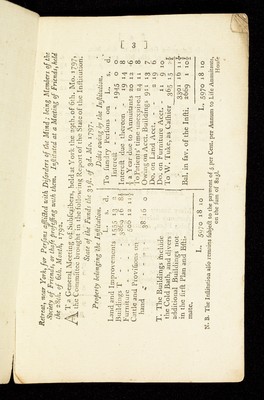 [ 3 ]
Retreat, near York, for Persons afflicted with Disorders of the Mind: being Members of the
Society of Friends, or those professing with them: instituted at a Meeting of Friends, held
the 28th. of 6th. Month, 1792.
AT a General Meeting of Subscribers, held at York the 29th. of 6th. Mo. 1797,
the Committee brought in the following Report of the State of the Institution.
State of the Funds the 31st. of 3d. Mo. 1797.
Property belonging the Institution.
L. s. d.
Land and Improvements 1555 13 0
Buildings T - - 3869 16 8½
Furniture - - 506 12 11½
Cattle and Provisions on
hand - - - 38 16 0
T. The Buildings include
the Cold Bath, and divers
additional Buildings not
in the first Plan and Esti-
mate.
L. 5970 18 10
Debts owing by the Institution.
L. s. d.
To sundry Persons on
Interest - - 1945 0 0
Interest due thereon - 19 14 8
To Value to Annuitants 20 12 6
To Patients' time unexpired 24 11 8
Owing on Acct. Buildings 911 13 7
Do. on Land Acct. - 2 19 0
Do. on Furniture Acct. - 11 9 10
To W. Tuke, as Cashier 365 15
3301 16 11
Bal. in fav. of the Insti. 2669 1 10
L. 5970 18 10
N. B. The Institution also remains subject to the payment of 5 per Cent. per Annum to Life Annuitants,
on the Sum of
House-